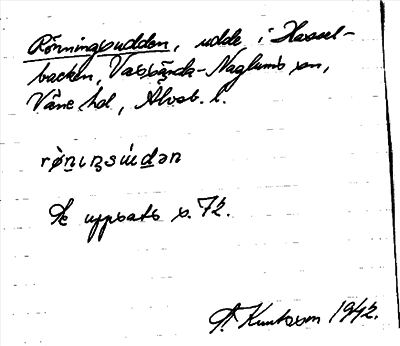 Rönningsudden, udde i Hassel-
backen, Vassända-Naglums sn,
Väne hd, Älvsb. l.
rø̀n̲ɩŋsú̵d̲ən
Se uppsats s. 72.
A. Knutsson 1942.